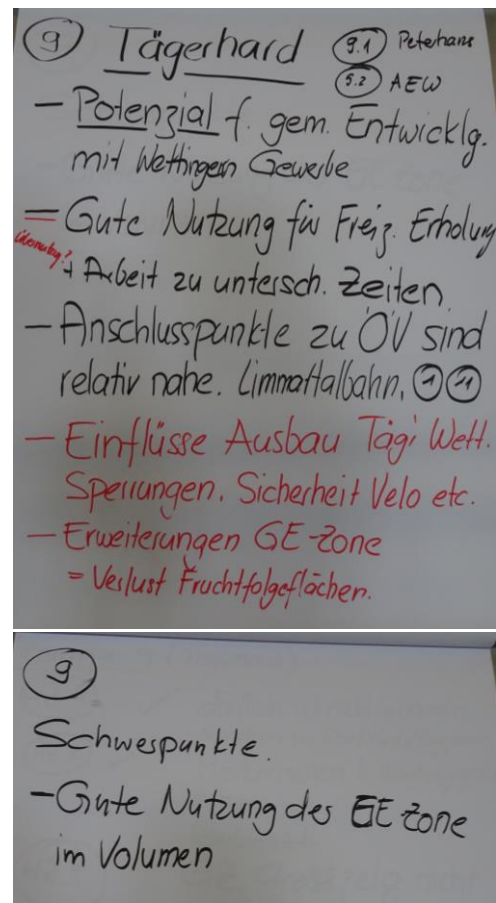 9 Tägerhard 9.1 Peterhans
5.2 AEW
- Potenzial f. gem. Entwicklg.
mit Wettingern Gewerbe
- Gute Nutzung für Freiz. Erholung
+ Arbeit zu untersch. Zeiten.
- Anschlusspunkte zu ÖV sind
relativ nahe. Limmattalbahn. 1 11
- Einflüsse Ausbau Tägi Wett.
Sperrungen. Sicherheit Velo etc.
- Erweiterungen GE-Zone
= Verlust Fruchtfolgeflächen.
9
Schwespunkte.
- Gute Nutzung des GE Zone
im Volumen